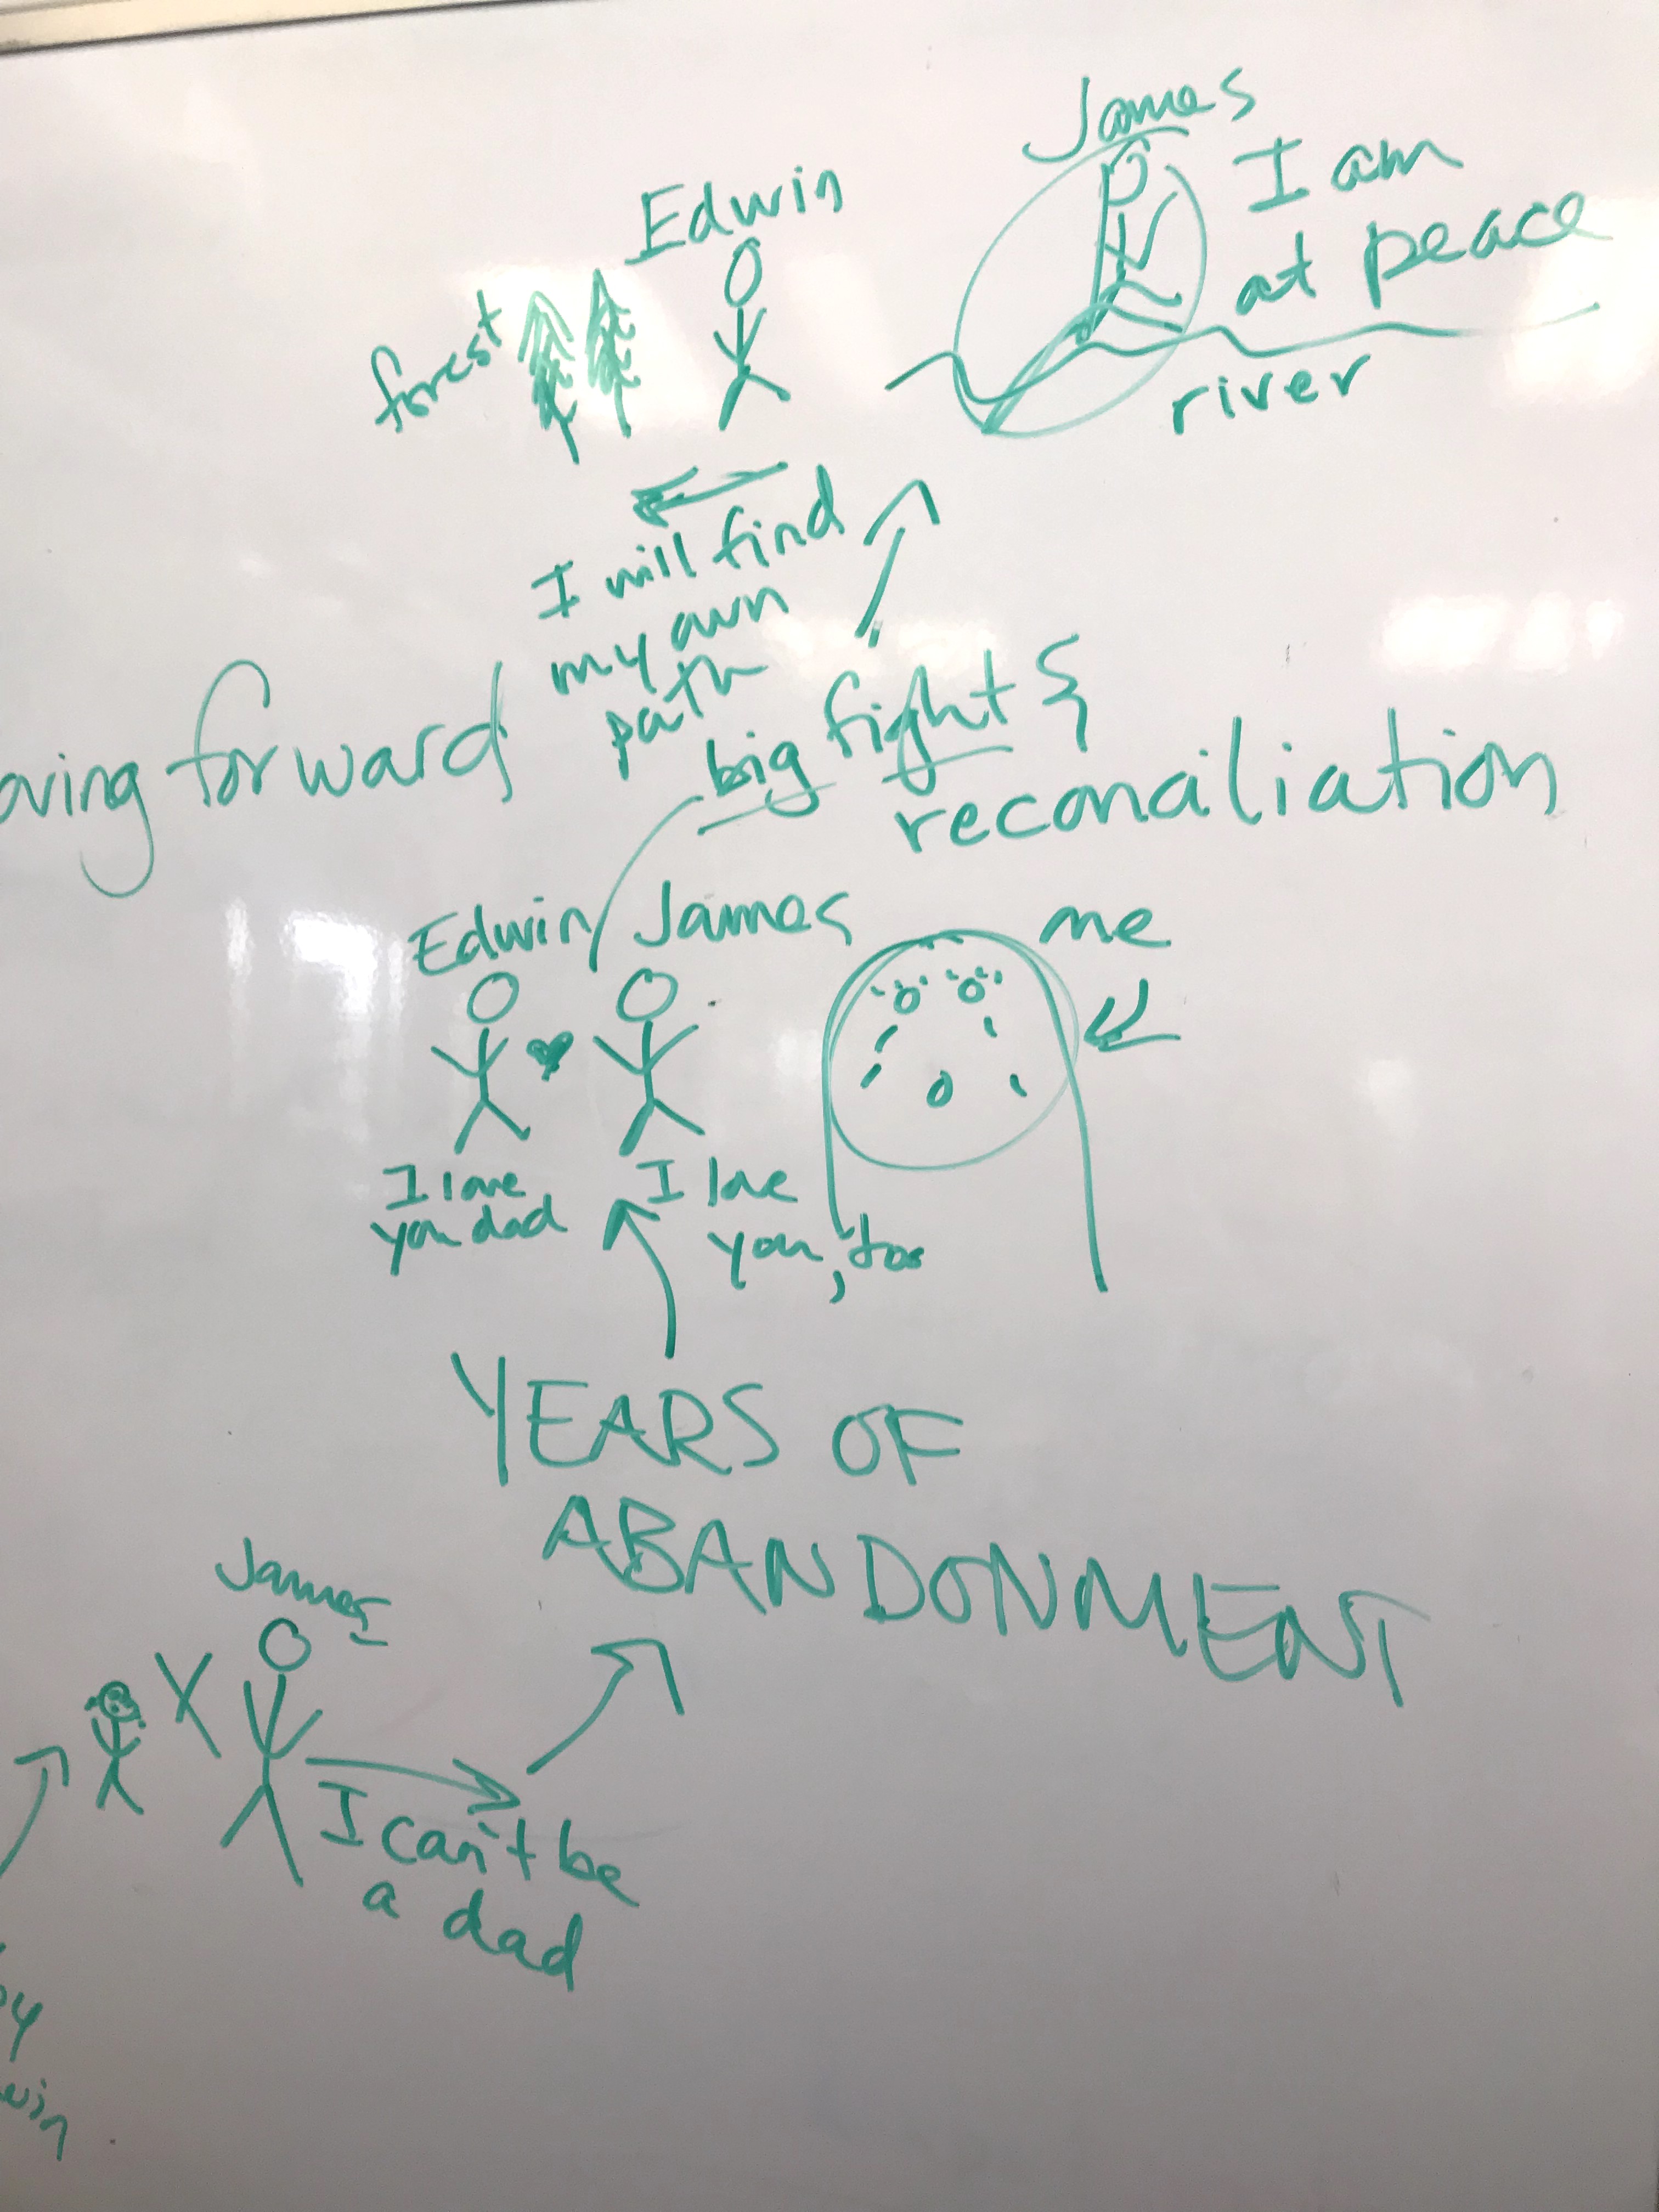 James
I am
at peace
Edwin
forest
river
I will find
my own
path
big fight &
reconciliation
oving forward
Edwin
James
me
I love
you dad
I love
you, too
YEARS OF
ABANDONMENT
James
I can't be
a dad
win